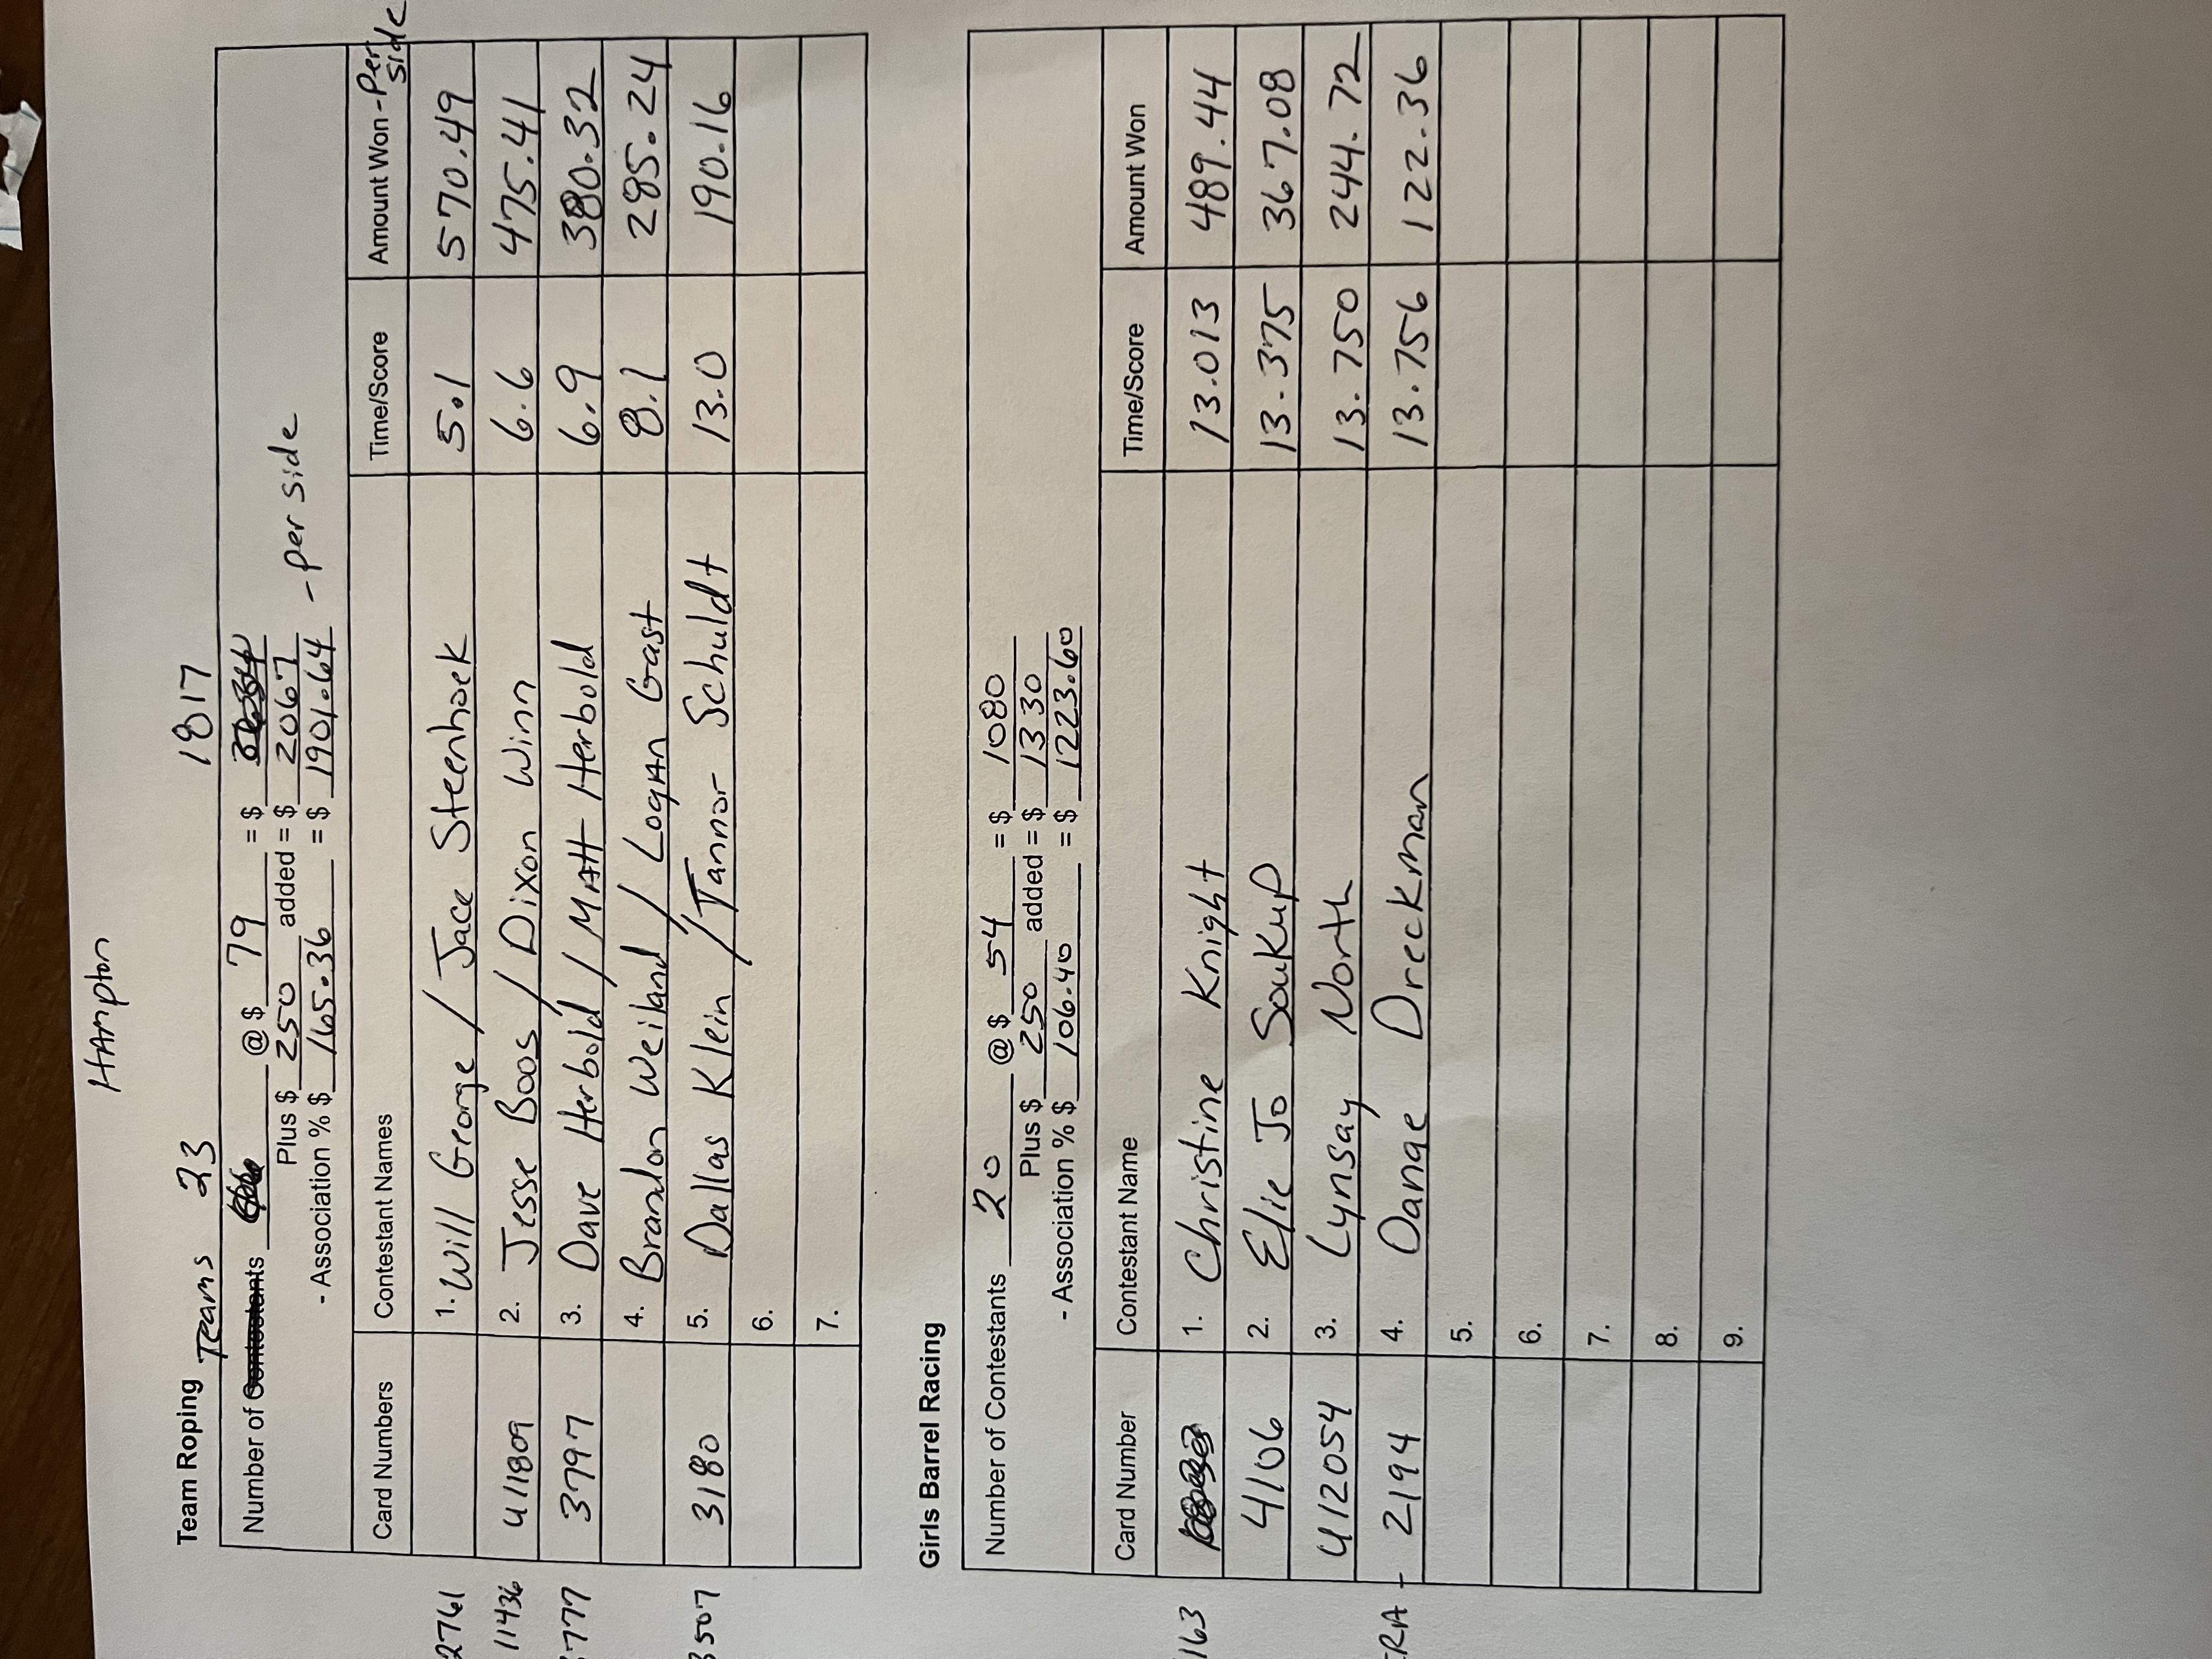 HAmpton
Team Roping Teams 23 1817
Number of Contestants @ $ 79 = $
Plus $ 250 added = $ 2067
- Association % $ 165.36 = $ 1901.64 - per side
Card Numbers Contestant Names Time/Score Amount Won - Per side
2761 1. Will George / Jace Steenhoek 5.1 570.49
11436 411809 2. Jesse Boos / Dixon Winn 6.6 475.41
777 3797 3. Dave Herbold / Matt Herbold 6.9 380.32
4. Brandon Weiland / Logan Gast 8.1 285.24
3507 3180 5. Dallas Klein / Tannor Schuldt 13.0 190.16
6.
7.
Girls Barrel Racing
Number of Contestants 20 @ $ 54 = $ 1080
Plus $ 250 added = $ 1330
- Association % $ 106.40 = $ 1223.60
Card Number Contestant Name Time/Score Amount Won
163 1. Christine Knight 13.013 489.44
4106 2. Elie Jo Soukup 13.375 367.08
412054 3. Lynsay North 13.750 244.72
RA - 2194 4. Danae Dreckman 13.756 122.36
5.
6.
7.
8.
9.